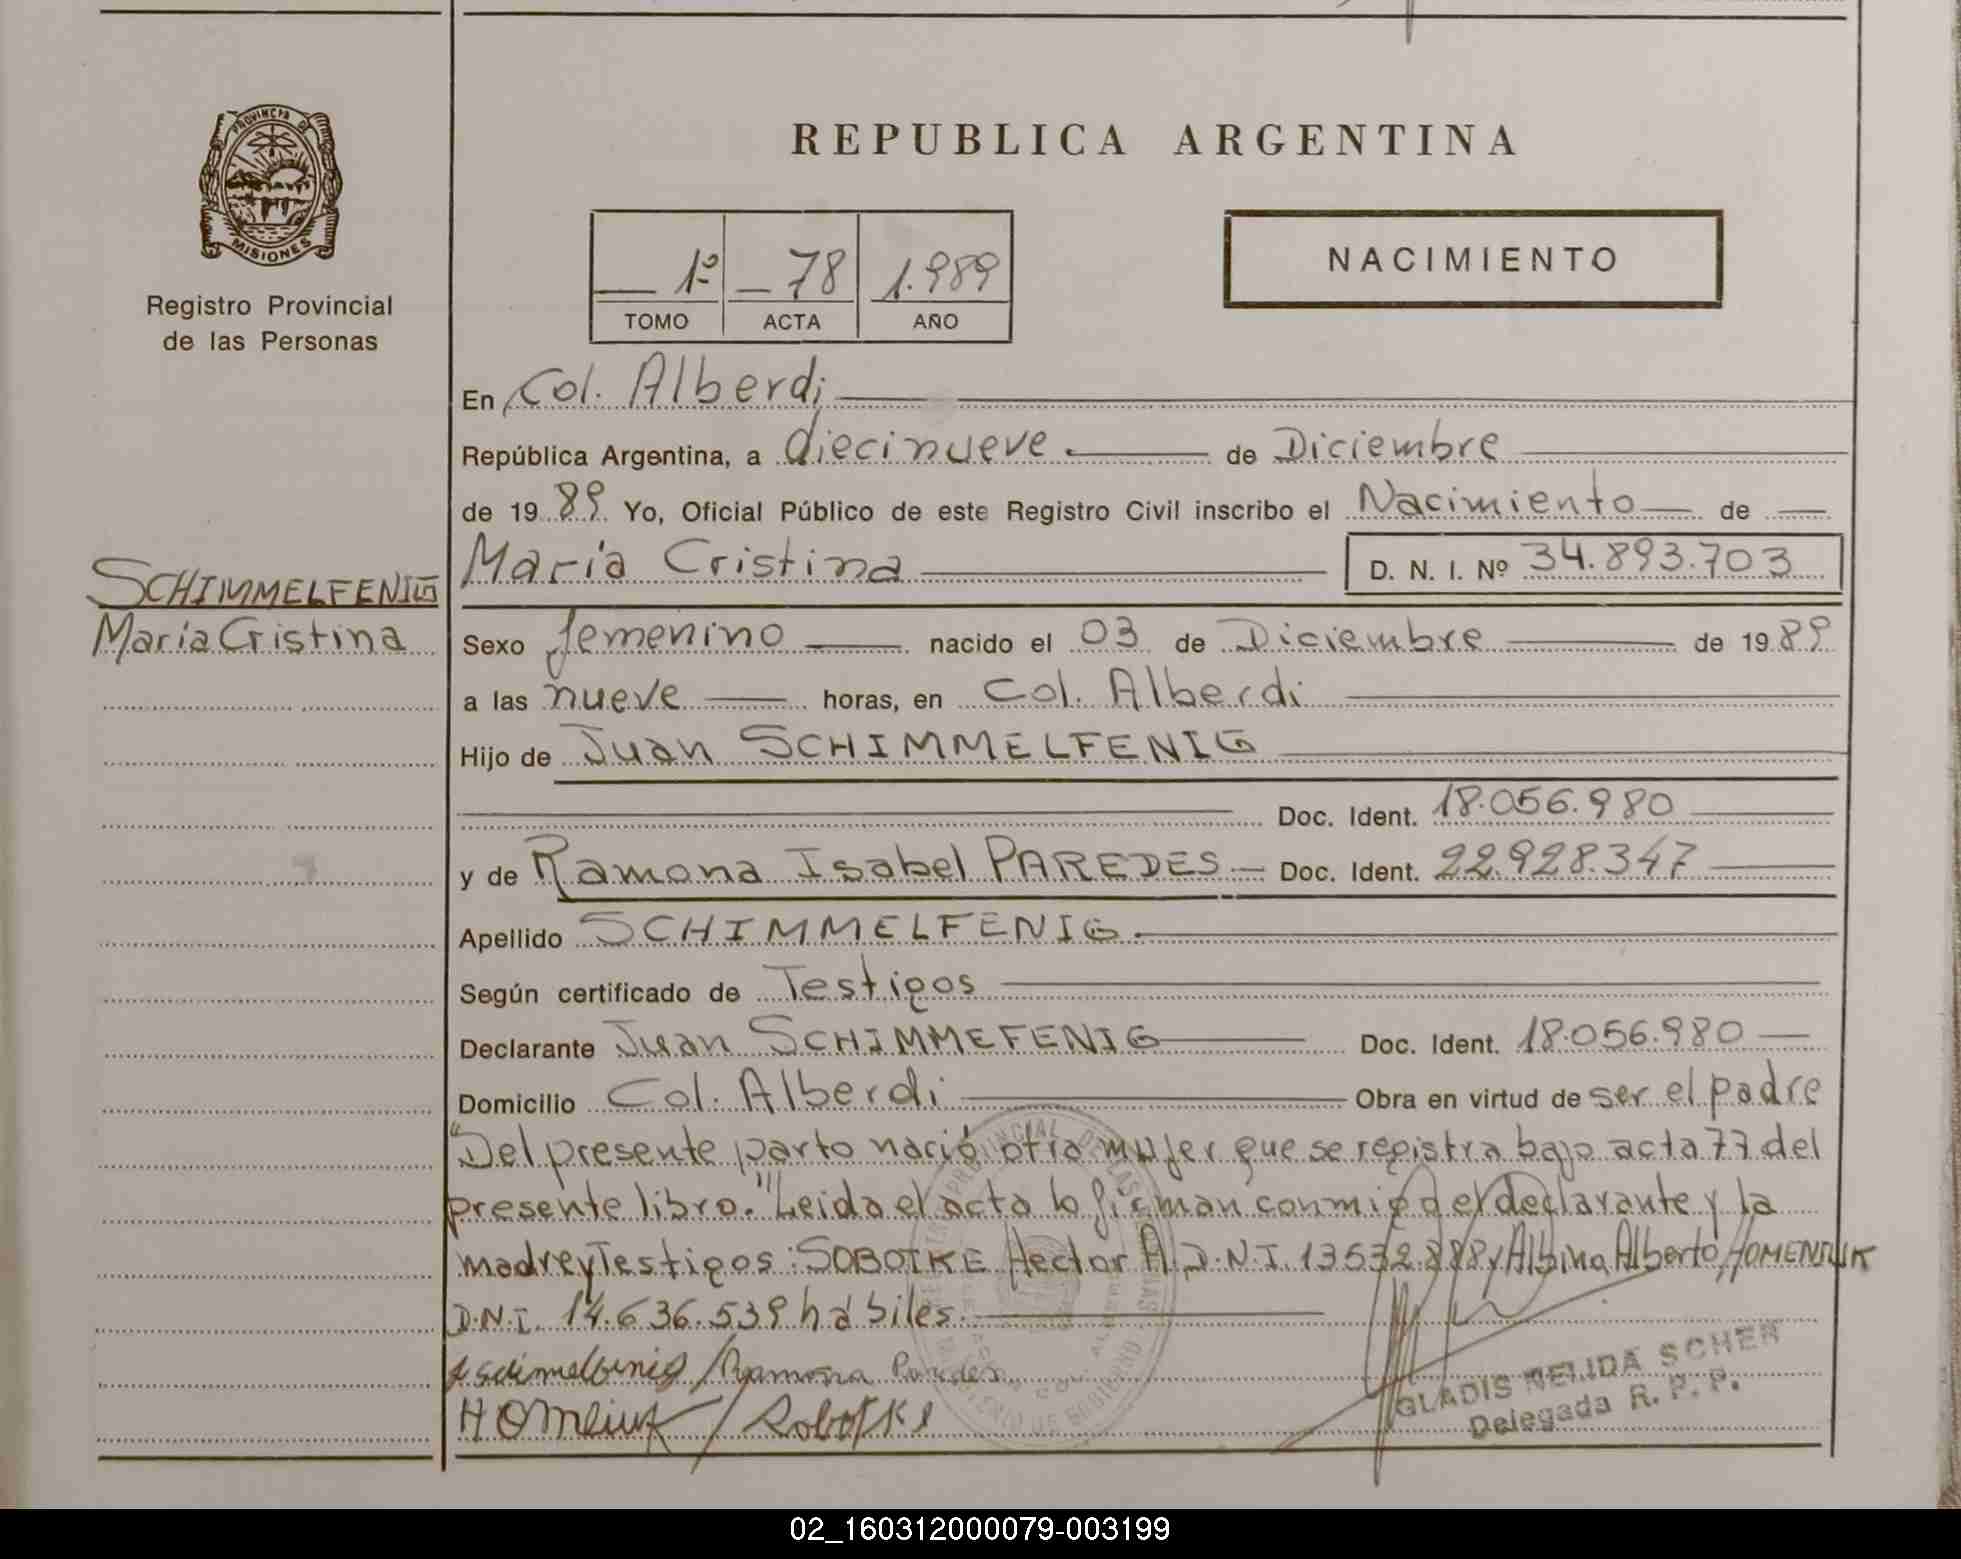 REPUBLICA ARGENTINA
PROVINCIA DE
MISIONES
Registro Provincial
de las Personas
1º 78 1.989
TOMO ACTA AÑO
NACIMIENTO
En Col. Alberdi
República Argentina, a diecinueve de Diciembre
de 19 89 Yo, Oficial Público de este Registro Civil inscribo el Nacimiento de
SCHIMMELFENIG
María Cristina
María Cristina D. N. I. Nº 34.893.703
Sexo femenino nacido el 03 de Diciembre de 19 89
a las nueve horas, en Col. Alberdi
Hijo de Juan SCHIMMELFENIG
Doc. Ident. 18.056.980
y de Ramona Isabel PAREDES Doc. Ident. 22.928.347
Apellido SCHIMMELFENIG.
Según certificado de Testigos
Declarante Juan SCHIMMEFENIG Doc. Ident. 18.056.980
Domicilio Col. Alberdi Obra en virtud de ser el padre
"Del presente parto nació otra mujer que se registra bajo acta 77 del
presente libro." Leida el acta lo firman conmigo el declarante y la
madre y Testigos: SOBOTKE Hector A. D.N.I. 13532888 y Albino Alberto HOMENIUK
D.N.I. 14.636.539 hábiles.
Ramona Paredes
GLADIS NELIDA SCHEN
Delegada R. P. P.
02_160312000079-003199